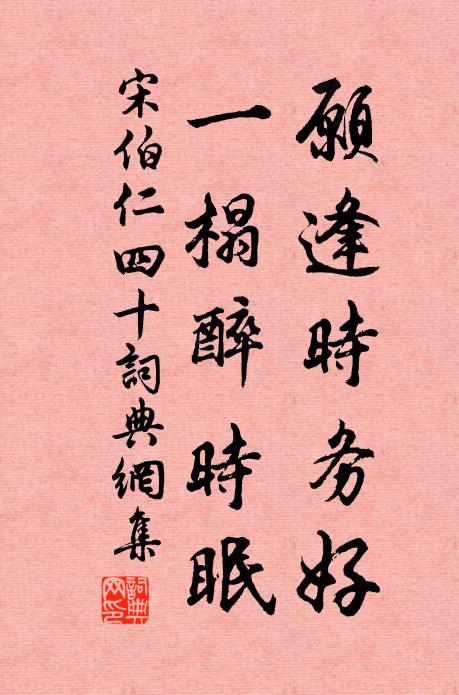 願逢時务好
一榻醉時眠
宋伯仁四十詞典網集
詞典網印